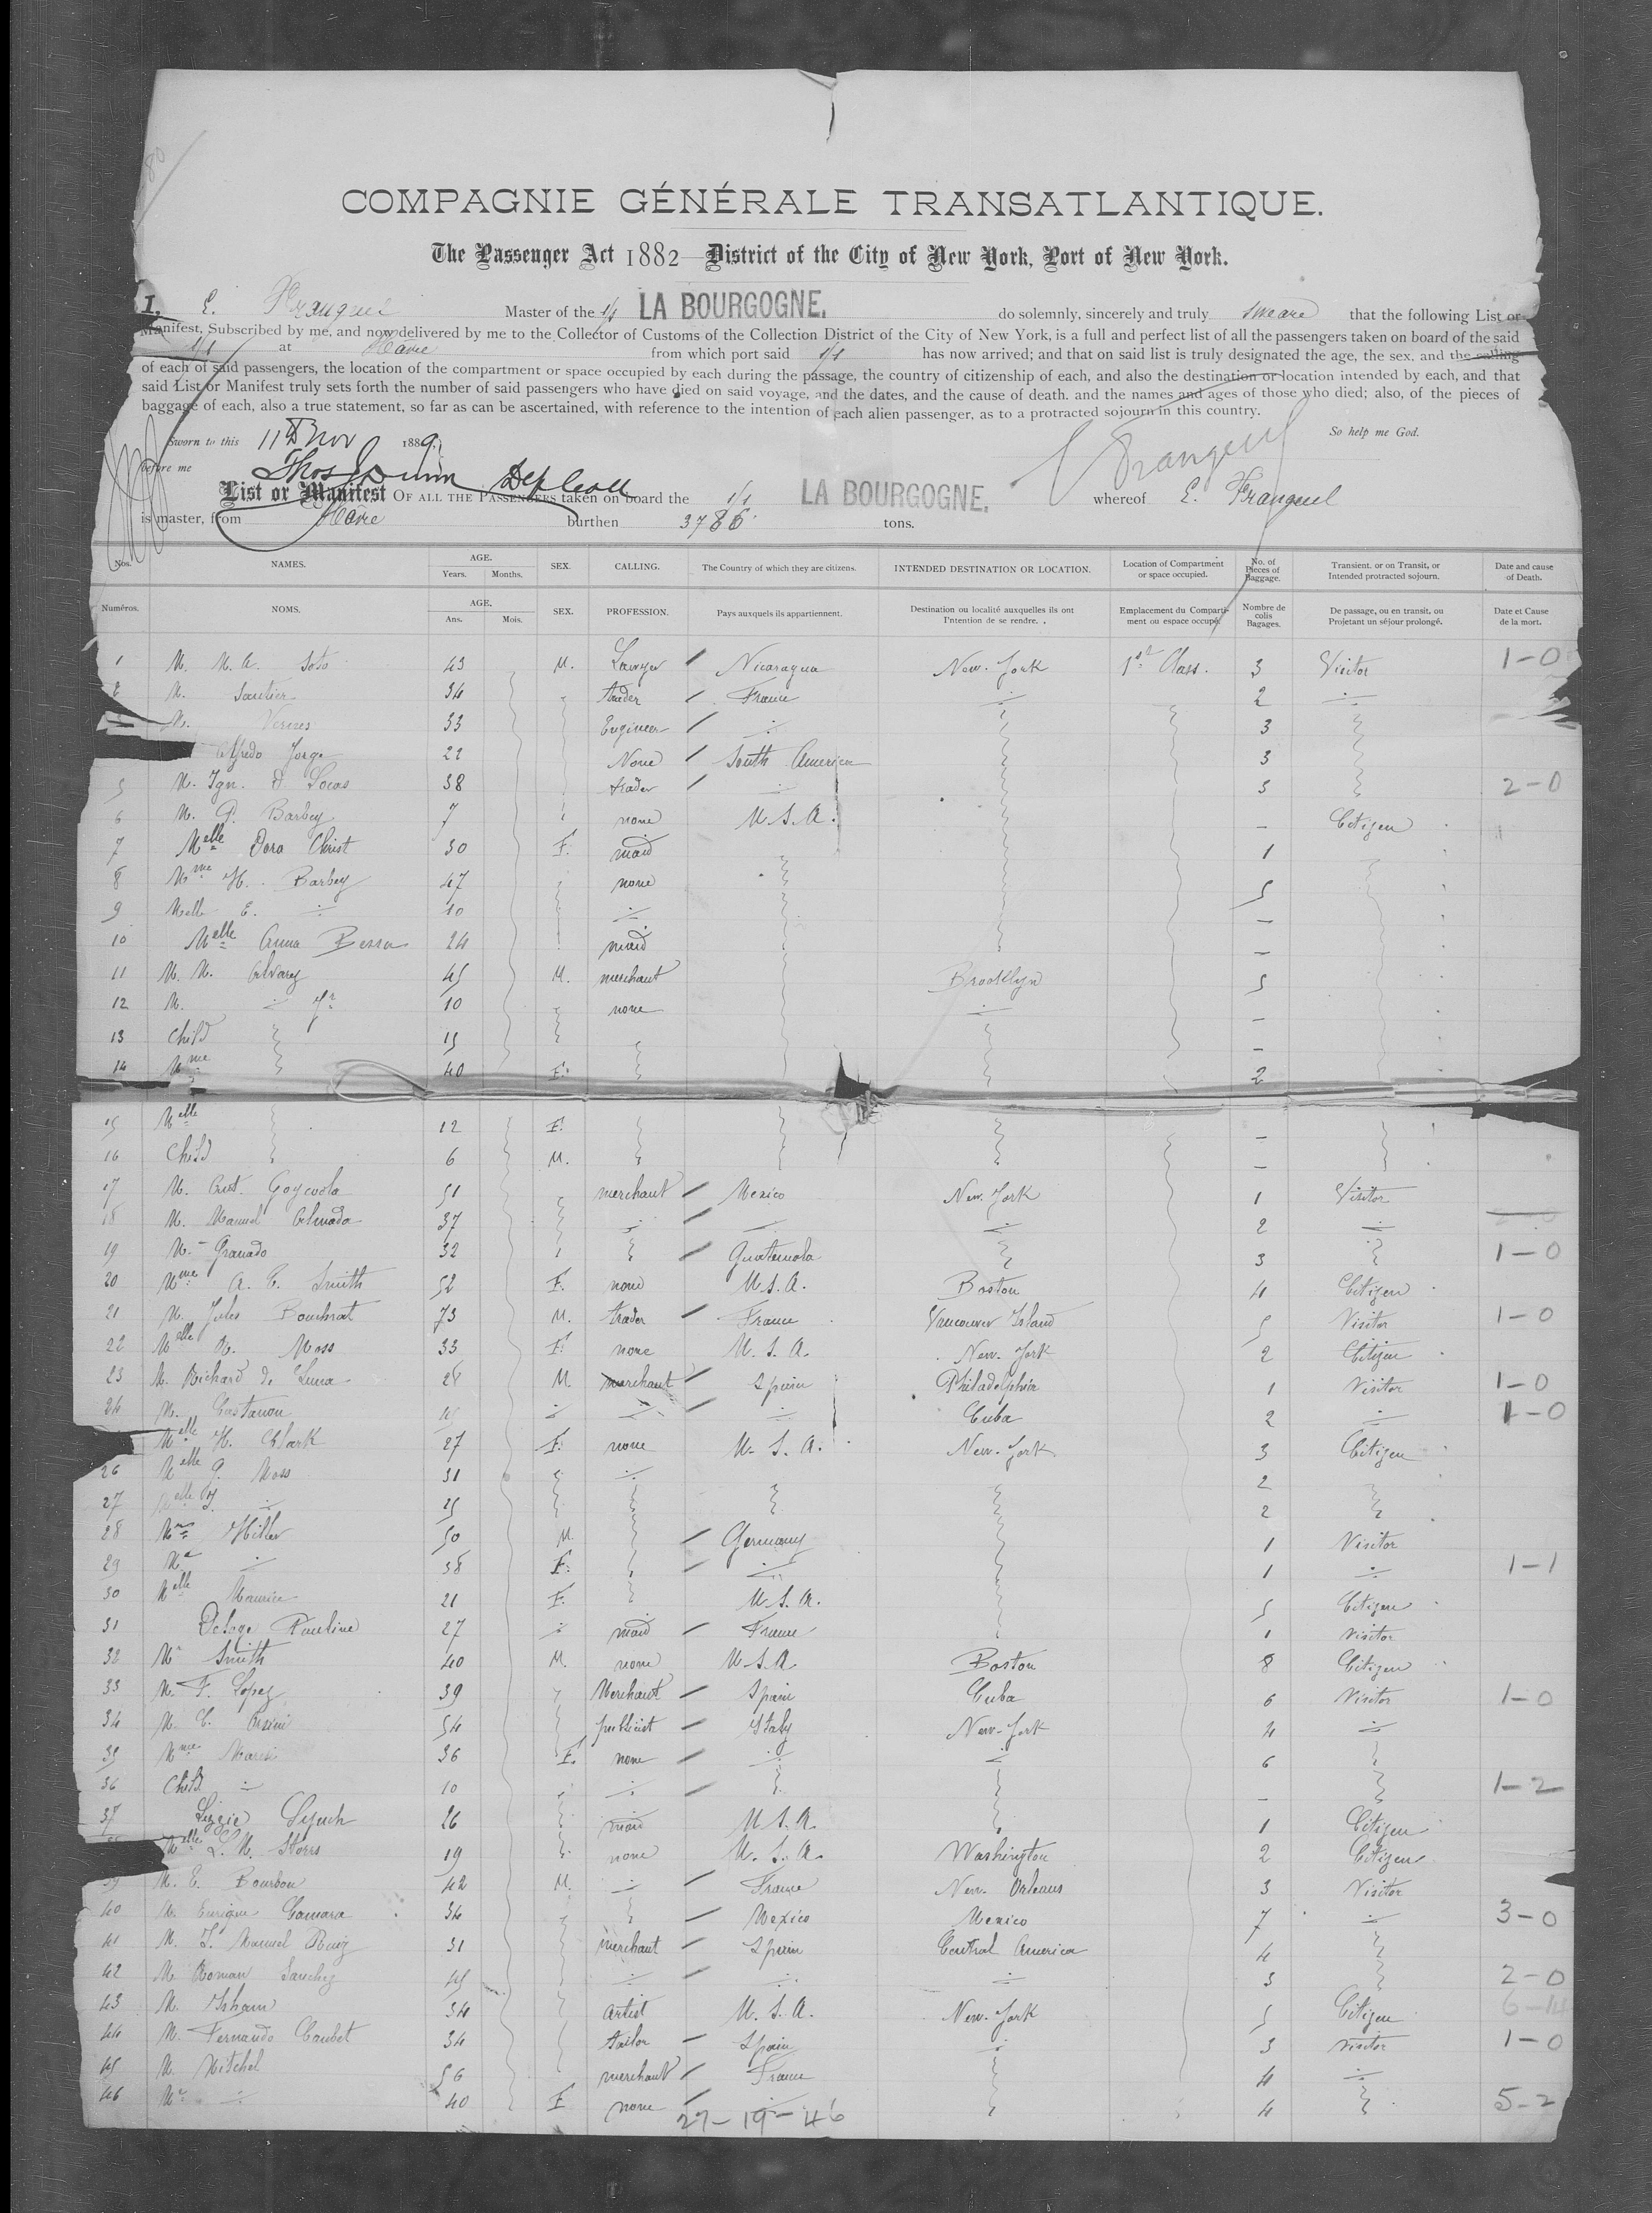 COMPAGNIE GÉNÉRALE TRANSATLANTIQUE.
The Passenger Act 1882 District of the City of New York, Port of New York.
I, E. Frangeul Master of the S/S LA BOURGOGNE. do solemnly, sincerely and truly sweare that the following List or
Manifest, Subscribed by me, and now delivered by me to the Collector of Customs of the Collection District of the City of New York, is a full and perfect list of all the passengers taken on board of the said
S/S at Havre from which port said S/S has now arrived; and that on said list is truly designated the age, the sex, and the calling
of each of said passengers, the location of the compartment or space occupied by each during the passage, the country of citizenship of each, and also the destination or location intended by each, and that
said List or Manifest truly sets forth the number of said passengers who have died on said voyage, and the dates, and the cause of death. and the names and ages of those who died; also, of the pieces of
baggage of each, also a true statement, so far as can be ascertained, with reference to the intention of each alien passenger, as to a protracted sojourn in this country.
Sworn to this 11th Nov 1889, So help me God.
before me Thos Dunn Dep Coll Frangeul
List or Manifest OF ALL THE PASSENGERS taken on board the S/S LA BOURGOGNE. whereof E. Frangeul
is master, from Havre burthen 3786 tons.
Nos. NAMES. AGE. Years. Months. SEX. CALLING. The Country of which they are citizens. INTENDED DESTINATION OR LOCATION. Location of Compartment or space occupied. No. of Pieces of Baggage. Transient. or on Transit, or Intended protracted sojourn. Date and cause of Death.
Numéros. NOMS. AGE. Ans. Mois. SEX. PROFESSION. Pays auxquels ils appartiennent. Destination ou localité auxquelles ils ont l'intention de se rendre. Emplacement du Compartiment ou espace occupé. Nombre de colis Bagages. De passage, ou en transit, ou Projetant un séjour prolongé. Date et Cause de la mort.
1 M. M. A. Soto 43 M. Lawyer Nicaragua New-York 1st Class. 3 Visitor 1-0
2 M. Sautier 34 trader France 2
M. Vernes 33 Engineer 3
Alfredo Jorge 22 None South America 3
5 M. Ign. D. Socas 38 trader 5 2-0
6 M. P. Barbey 7 none U.S.A. - Citizen
7 Melle Dora Christ 30 F. maid 1
8 Mme H. Barbey 47 none 5
9 Melle E. 10 -
10 Melle Anna Bessa 24 maid -
11 M. M. Alvarez 45 M. merchant Brooklyn 5
12 M. Jr 10 none -
13 Child 15 -
14 Mme 40 F. 2
15 Melle 12 F. -
16 Child 6 M. -
17 M. Ant. Goycoola 51 merchant Mexico New-York 1 Visitor
18 M. Manuel Almada 37 2
19 M. Granado 32 Guatemala 3 1-0
20 Mme A. E. Smith 52 F. none U.S.A. Boston 4 Citizen
21 M. Jules Bouchrat 73 M. trader France Vancouver Island 5 Visitor 1-0
22 Melle R. Moss 33 F. none U.S.A. New-York 2 Citizen
23 M. Richard de Luna 28 M. merchant Spain Philadelphia 1 Visitor 1-0
24 M. Castanon 45 Cuba 2 1-0
Melle H. Clark 27 F. none U.S.A. New-York 3 Citizen
26 Melle G. Moss 31 2
27 Melle J. 25 2
28 Hiller 50 M. Germany 1 Visitor
29 38 F. 1 1-1
30 Melle Maurice 21 F. U.S.A. 5 Citizen
31 Deloge Pauline 27 maid France 1 visitor
32 Mr Smith 40 M. none U.S.A. Boston 8 Citizen
33 M. F. Lopez 39 Merchant Spain Cuba 6 Visitor 1-0
34 M. C. Orsini 54 publicist Italy New-York 4
35 Mme March 36 F. none 6
36 Child 10 - 1-2
37 Lizzie Lynch 26 maid U.S.A. 1 Citizen
Melle L. M. Storrs 19 none U.S.A. Washington 2 Citizen
39 M. E. Bourbon 42 M. France New Orleans 3 Visitor
40 M. Enrique Camara 34 Mexico Mexico 7 3-0
41 M. J. Manuel Ruiz 31 merchant Spain Central America 4
42 M. Roman Sanchez 45 3 2-0
43 M. Isham 34 artist U.S.A. New-York 5 Citizen
44 M. Fernando Caubet 34 tailor Spain 3 visitor 1-0
45 M. Mitchel 56 merchant France 4
46 40 F. none 4 5-2
27-19-46